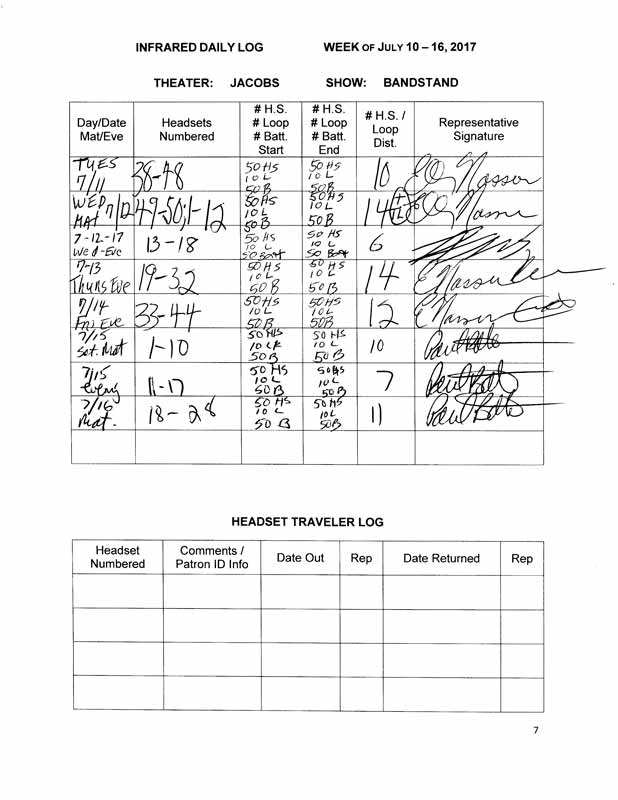 INFRARED DAILY LOG WEEK OF JULY 10 – 16, 2017
THEATER: JACOBS SHOW: BANDSTAND
Day/Date
Mat/Eve
Headsets
Numbered
# H.S.
# Loop
# Batt.
Start
# H.S.
# Loop
# Batt.
End
# H.S. /
Loop
Dist.
Representative
Signature
TUES
7/11
38-48
50 HS
10 L
50 B
50 HS
10 L
50 B
10
WED 7/12
MAT
49-50; 1-12
50 HS
10 L
50 B
50 HS
10 L
50 B
14
7-12-17
Wed-Eve
13-18
50 HS
10 L
50 Batt
50 HS
10 L
50 Batt
6
7-13
Thurs Eve
19-32
50 HS
10 L
50 B
50 HS
10 L
50 B
14
7/14
Fri Eve
33-44
50 HS
10 L
50 B
50 HS
10 L
50 B
12
7/15
Sat. Mat
1-10
50 HS
10 LK
50 B
50 HS
10 L
50 B
10
7/15
11-17
50 HS
10 L
50 B
50 HS
10 L
50 B
7
7/16
Mat.
18-28
50 HS
10 L
50 B
50 HS
10 L
50 B
11
HEADSET TRAVELER LOG
Headset
Numbered
Comments /
Patron ID Info
Date Out
Rep
Date Returned
Rep
7